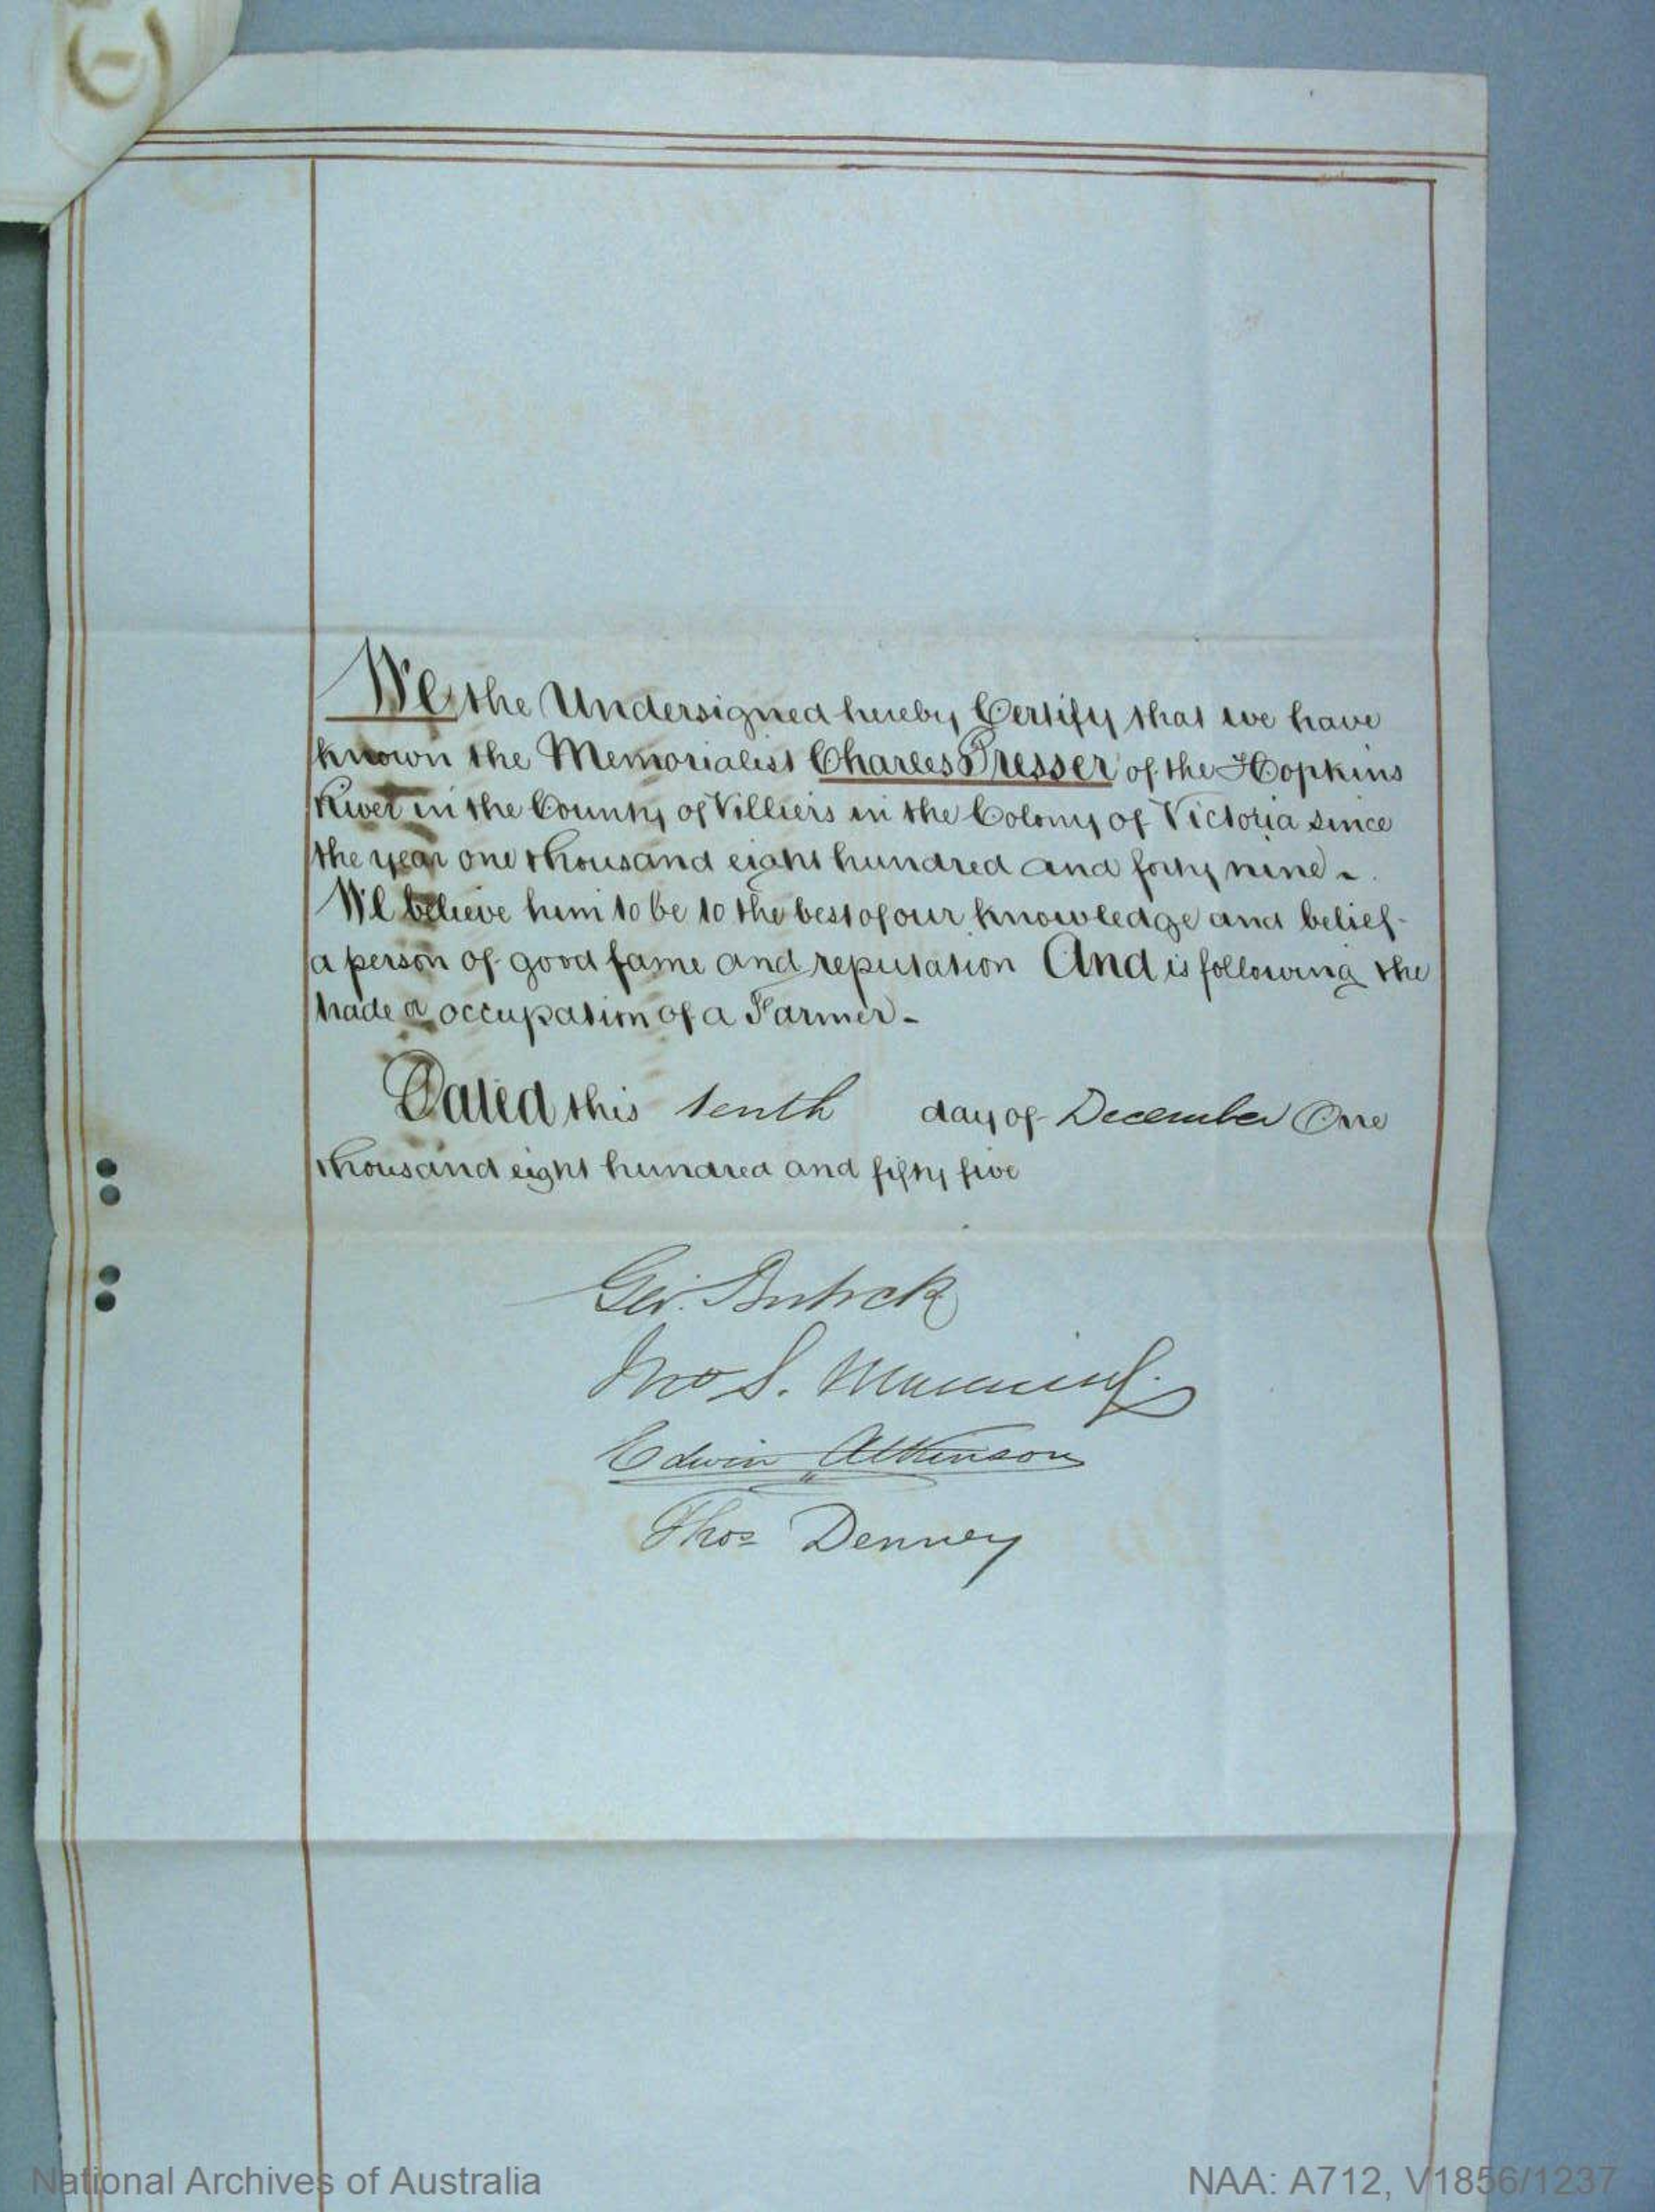 We the Undersigned hereby Certify that we have
known the Memorialist Charles Presser of the Hopkins
River in the County of Villiers in the Colony of Victoria since
the year one thousand eight hundred and forty nine -
We believe him to be to the best of our knowledge and belief
a person of good fame and reputation And is following the
trade or occupation of a Farmer -
Dated this tenth day of December One
thousand eight hundred and fifty five
Geo.
Jno S. Manning
Edwin Atkinson
Thos Denney
National Archives of Australia NAA: A712, V1856/1237